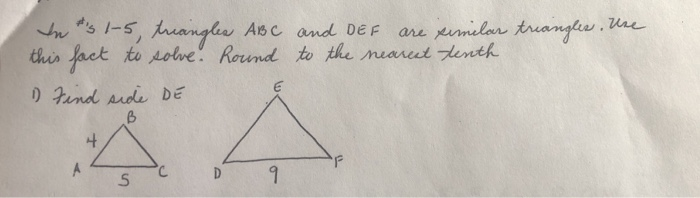 In #'s 1-5, triangles ABC and DEF are similar triangles. Use
this fact to solve. Round to the nearest tenth
1) Find side DE
E
B
4
A
C
5
D
F
9